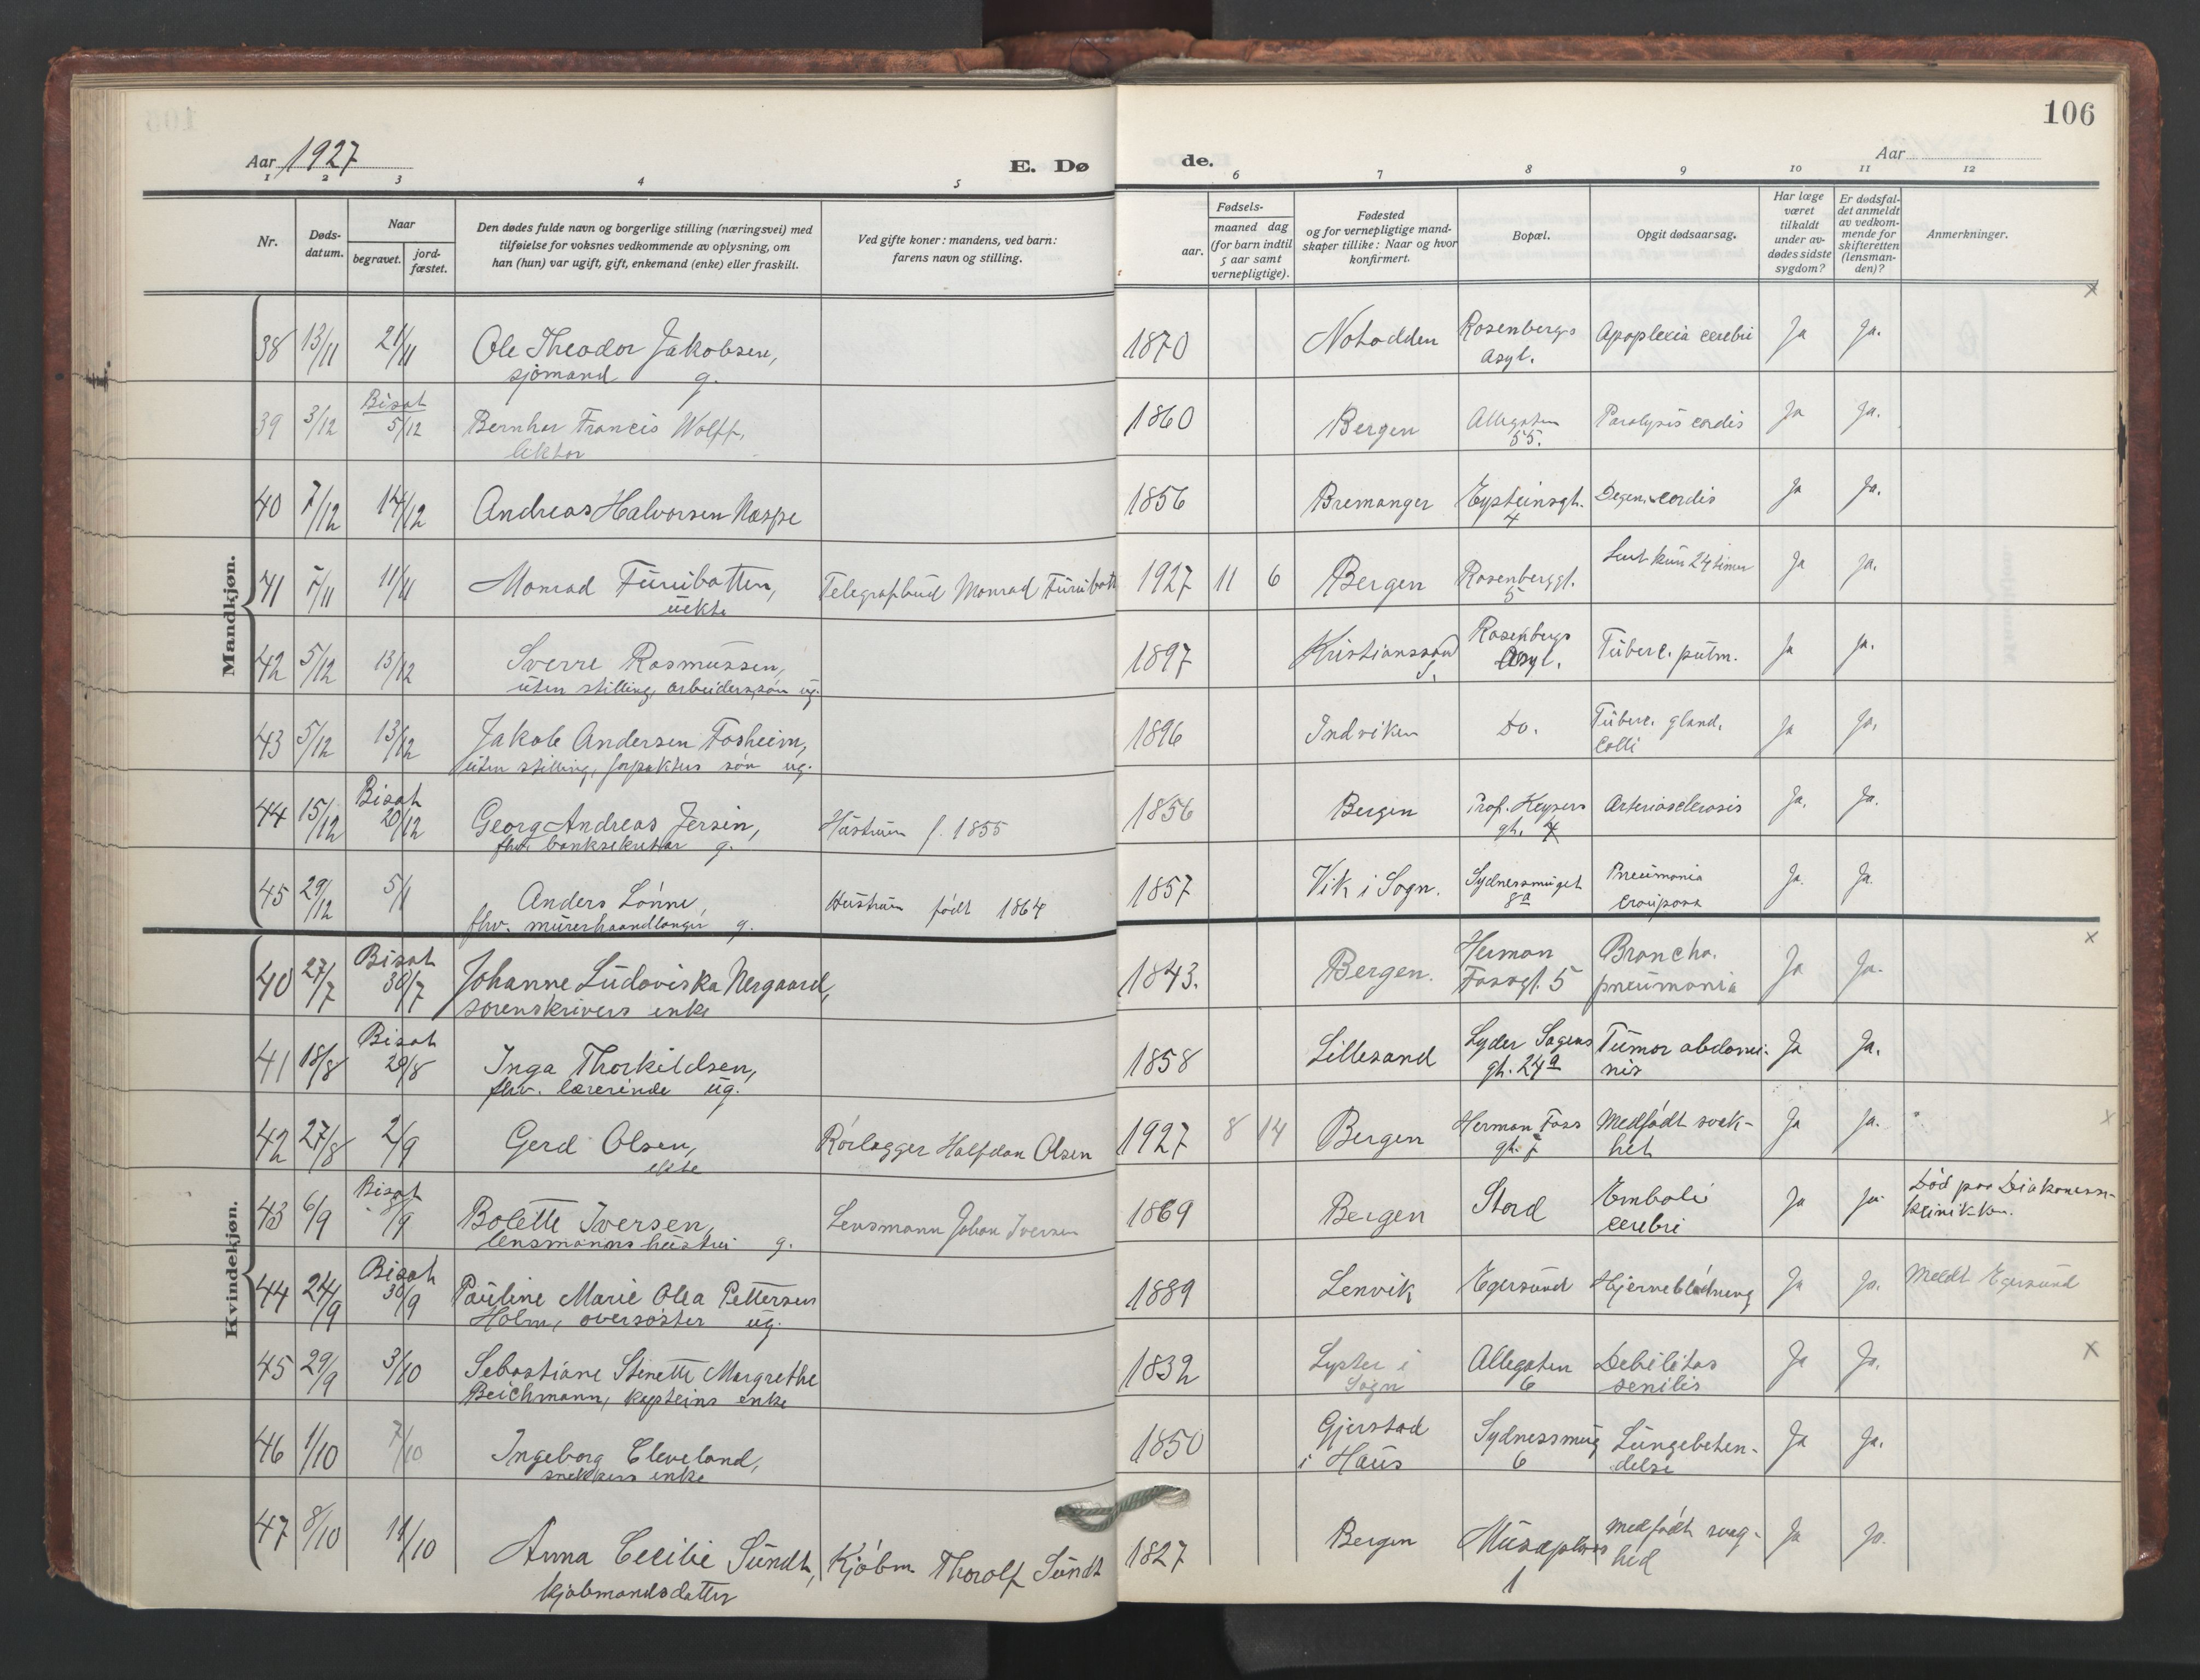 106
Aar 1927
E. Dø
de.
Aar
1 2 3 4 5 6 7 8 9 10 11 12
Nr.
Døds-
datum.
Naar
begravet.
jord-
fæstet.
Den dødes fulde navn og borgerlige stilling (næringsvei) med
tilføielse for voksnes vedkommende av oplysning, om
han (hun) var ugift, gift, enkemand (enke) eller fraskilt.
Ved gifte koner: mandens, ved barn:
farens navn og stilling.
Fødsels-
aar.
maaned dag
(for barn indtil
5 aar samt
vernepligtige).
Fødested
og for vernepligtige mand-
skaper tillike: Naar og hvor
konfirmert.
Bopæl.
Opgit dødsaarsag.
Har læge
været
tilkaldt
under av-
dødes sidste
sygdom?
Er dødsfal-
det anmeldt
av vedkom-
mende for
skifteretten
(lensman-
den)?
Anmerkninger.
Mandkjøn.
38 13/11 21/11 Ole Theodor Jakobsen, 1870 Notodden Rosenbergs Apoplexia cerebri Ja Ja.
sjömand g. Asyl.
Bisat
39 3/12 5/12 Bernhar Francis Wolff, 1860 Bergen Allegaten Paralysis cordis Ja Ja.
lektor 55.
40 7/12 14/12 Andreas Halvorsen Næspe 1856 Bremanger Eysteinsgt. Degen. cordis Ja Ja.
4
41 7/11 11/11 Monrad Furubotten, Telegrafbud Monrad 1927 11 6 Bergen Rosenberggt. Levet kun 24 timer Ja Ja.
uekte 5
42 5/12 13/12 Sverre Rasmussen, 1897 Kristianssand Rosenbergs Tuberc. pulm. Ja Ja.
uten stilling, arbeiderssön ug. S. Asyl.
43 5/12 13/12 Jakob Andersen Fosheim, 1896 Indviken Do. Tuberc. gland. Ja Ja.
uten stilling, forpakters sön ug. Colli
Bisat
44 15/12 20/12 Georg Andreas Jersin, Hustruen f. 1855 1856 Bergen Prof. Keysers Arteriosclerosis Ja. Ja.
fhv. banksekretær g. gt.
45 29/12 5/1 Anders Lönne, Hustruen födt 1864 1857 Vik i Sogn. Sydnessmuget Pneumonia Ja. Ja.
fhv. murerhaandlanger g. 8a crouposa
Kvindekjøn.
Bisat
40 27/7 30/7 Johanne Ludoviska Nergaard, 1843. Bergen. Herman Broncho. Ja Ja.
sorenskrivers enke Fossgt. 5 pneumonia
Bisat
41 18/8 20/8 Inga Thorkildsen, 1858 Lillesand Lyder Sagens Tumor abdomi- Ja Ja.
fhv. lærerinde ug. gt. 24a nis
42 27/8 2/9 Gerd Olsen, Rörlægger Halfdan Olsen 1927 8 14 Bergen Herman Foss Medfödt svak- Ja Ja.
ekte gt. het
Bisat
43 6/9 8/9 Bolette Iversen, Lensmann Johan Iversen 1869 Bergen Stord Emboli Ja Ja Död paa Diakonisse-
lensmanns hustru g. cerebri klinikken.
Bisat
44 24/9 30/9 Pauline Marie Olea Pettersen 1889 Lenvik Egersund Hjerneblödning Ja Ja. Meldt Egersund
Holm, oversöster ug.
45 29/9 3/10 Sebastiane Stenette Margrethe 1832 Lyster i Allegaten Debilitas Ja Ja.
Beichmann, kapteins enke Sogn 6 senilis
46 1/10 7/10 Ingeborg Cleveland, 1850 Gjerstad Sydnessmug Lungebeten- Ja Ja.
snekkers enke i Haus 6 delse
47 8/10 11/10 Anna Cecilie Sundt, Kjöbm. Thorolf Sundt 1827 Bergen Musæplass medfödt svag- Ja Ja.
kjöbmandsdatter 1 hed